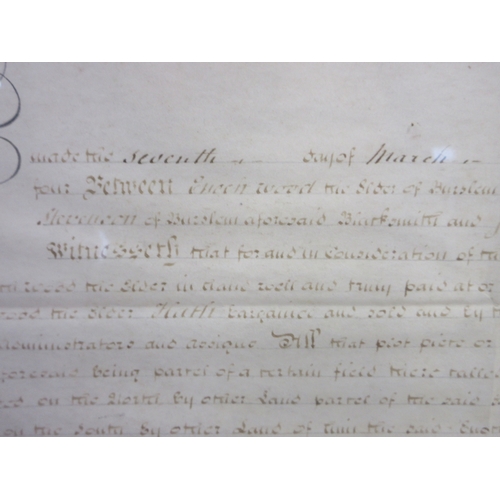 made the seventh day of March
four Between Enoch Wood the Elder of Burslem
Stevenson of Burslem aforesaid Blacksmith and
Witnesseth that for and in Consideration of the
Wood the Elder in hand well and truly paid at or
Wood the Elder Hath bargained and sold and by
administrators and assigns All that plot piece or
aforesaid being parcel of a certain field there called
on the North by other Land parcel of the said
on the South by other Land of him the said Enoch